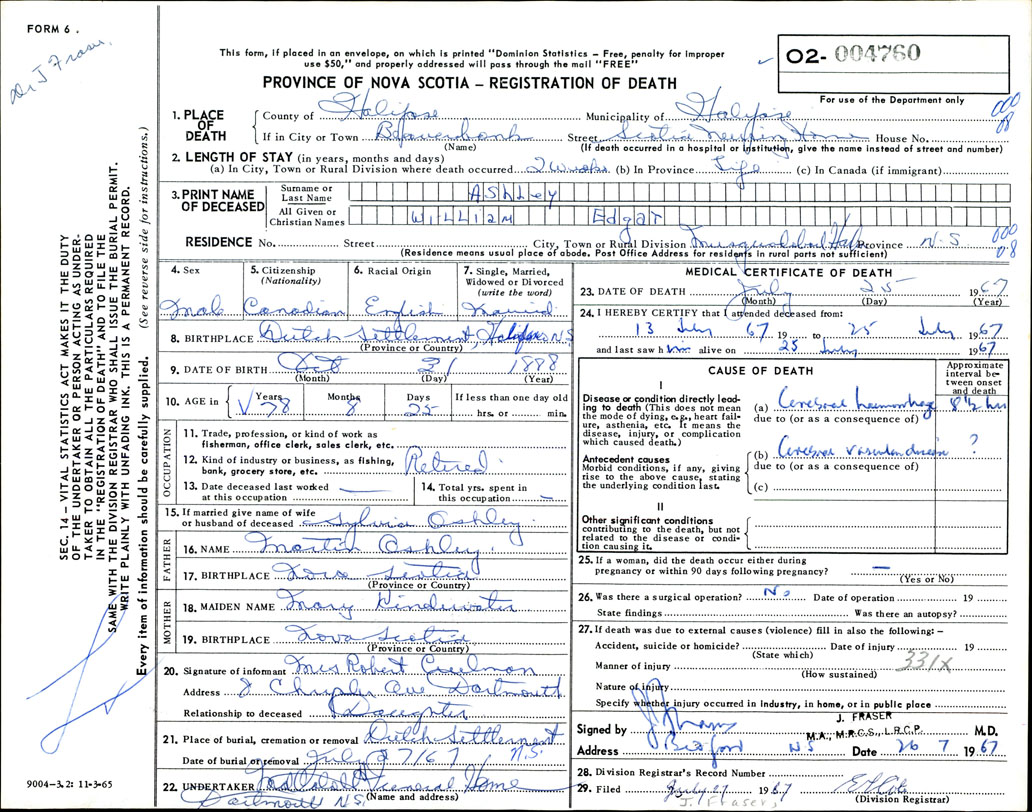 FORM 6.
Dr J Fraser,
This form, if placed in an envelope, on which is printed "Dominion Statistics – Free, penalty for improper
use $50," and properly addressed will pass through the mail "FREE"
PROVINCE OF NOVA SCOTIA – REGISTRATION OF DEATH
02-004760
For use of the Department only
000
08
1. PLACE OF DEATH
County of Halifax Municipality of Halifax
If in City or Town Beaverbank Street Scotia Nursing Home House No.
(Name) (If death occurred in a hospital or institution, give the name instead of street and number)
2. LENGTH OF STAY (in years, months and days)
(a) In City, Town or Rural Division where death occurred 2 Weeks (b) In Province Life (c) In Canada (if immigrant)
3. PRINT NAME OF DECEASED
Surname or Last Name ASHLEY
All Given or Christian Names WILLIAM Edgar
RESIDENCE No. Street City, Town or Rural Division Musquodoboit Hbr Province N.S
000
08
(Residence means usual place of abode. Post Office Address for residents in rural parts not sufficient)
4. Sex Male
5. Citizenship (Nationality) Canadian
6. Racial Origin English
7. Single, Married, Widowed or Divorced (write the word) Married
8. BIRTHPLACE Dutch Settlement, Halifax N.S
(Province or Country)
9. DATE OF BIRTH Oct 31 1888
(Month) (Day) (Year)
10. AGE in Years 78 Months 8 Days 25 If less than one day old hrs. or min.
OCCUPATION
11. Trade, profession, or kind of work as fisherman, office clerk, sales clerk, etc.
12. Kind of industry or business, as fishing, bank, grocery store, etc.
Retired
13. Date deceased last worked at this occupation —
14. Total yrs. spent in this occupation —
15. If married give name of wife or husband of deceased Sylvia Ashley
FATHER
16. NAME Martin Ashley
17. BIRTHPLACE Nova Scotia
(Province or Country)
MOTHER
18. MAIDEN NAME Mary
19. BIRTHPLACE Nova Scotia
(Province or Country)
20. Signature of informant Mrs Robert Creelman
Address Chrysler Ave Dartmouth
Relationship to deceased Daughter
21. Place of burial, cremation or removal Dutch Settlement
Date of burial or removal July 27/67 N.S
22. UNDERTAKER Funeral Home
Dartmouth N.S. (Name and address)
MEDICAL CERTIFICATE OF DEATH
23. DATE OF DEATH July 25 1967
(Month) (Day) (Year)
24. I HEREBY CERTIFY that I attended deceased from:
13 July 67 19 to 25 July 1967
and last saw him alive on 25 July 1967
CAUSE OF DEATH
Approximate interval between onset and death
I
Disease or condition directly leading to death (This does not mean the mode of dying, e.g., heart failure, asthenia, etc. It means the disease, injury, or complication which caused death.)
(a) Cerebral haemorrhage 8½ hrs
due to (or as a consequence of)
Antecedent causes
Morbid conditions, if any, giving rise to the above cause, stating the underlying condition last.
(b) Cerebral vascular disease ?
due to (or as a consequence of)
(c)
II
Other significant conditions
contributing to the death, but not related to the disease or condition causing it.
25. If a woman, did the death occur either during pregnancy or within 90 days following pregnancy? —
(Yes or No)
26. Was there a surgical operation? No Date of operation 19
State findings Was there an autopsy?
27. If death was due to external causes (violence) fill in also the following: –
Accident, suicide or homicide? Date of injury 19
(State which)
331X
Manner of injury
(How sustained)
Nature of injury
Specify whether injury occurred in industry, in home, or in public place
J. FRASER
Signed by J Fraser M.A., M.R.C.S., L.R.C.P. M.D.
Address Bedford NS Date 26 7 1967
28. Division Registrar's Record Number
29. Filed July 27 1967
J. Fraser,
(Division Registrar)
SEC. 14 – VITAL STATISTICS ACT MAKES IT THE DUTY
OF THE UNDERTAKER OR PERSON ACTING AS UNDER-
TAKER TO OBTAIN ALL THE PARTICULARS REQUIRED
IN THE "REGISTRATION OF DEATH" AND TO FILE THE
SAME WITH THE DIVISION REGISTRAR WHO SHALL ISSUE THE BURIAL PERMIT.
WRITE PLAINLY WITH UNFADING INK. THIS IS A PERMANENT RECORD.
Every item of information should be carefully supplied. (See reverse side for instructions.)
9004-3.2: 11-3-65